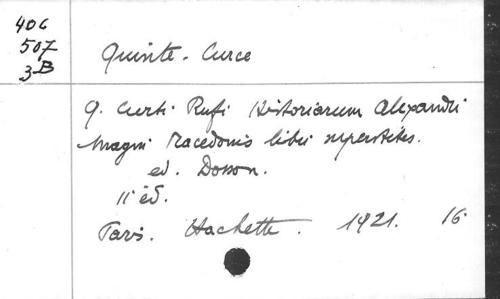 406
507
3B
Quinte-Curce
Q. Curti Rufi Historiarum Alexandri
Magni Macedonis libri superstites.
ed. Dosson.
11 éd.
Paris. Hachette. 1921. 16